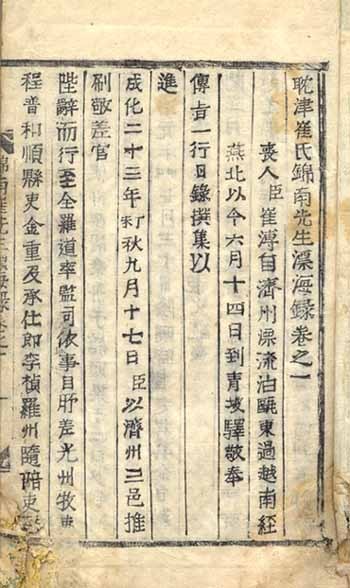 耽津崔氏錦南先生漂海録卷之一
喪人臣崔溥自濟州漂流泊甌東過越南經
燕北以今六月十四日到青坡驛敬奉
傳旨一行日録撰集以
進
成化二十三年丁未秋九月十七日臣以濟州三邑推
刷敬差官
陛辭而行至全羅道率監司依事目所差光州牧吏
程普和順縣吏金重及承仕郎李楨羅州隨陪吏